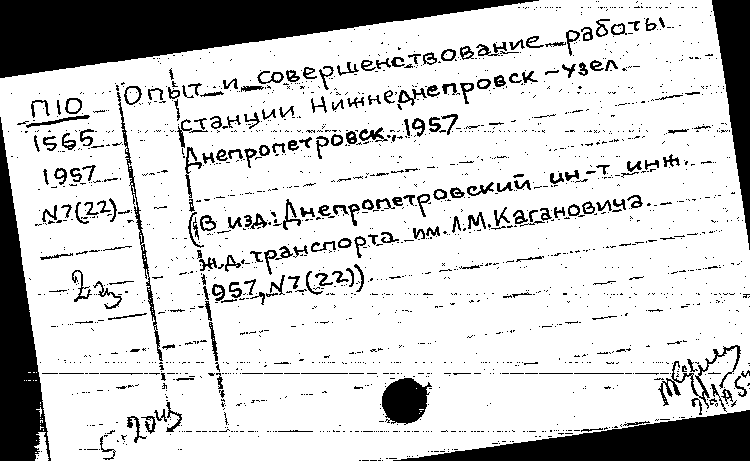 П10
1565
1957
N7(22)
2 эк.
Опыт и совершенствование работы
станции Нижнеднепровск-узел.
Днепропетровск, 1957
(В изд.: Днепропетровский ин-т инж.
ж.д. транспорта им. Л.М. Кагановича.
1957, N7(22)).